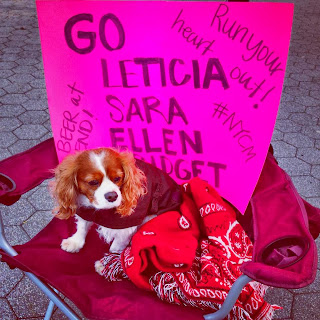 GO
LETICIA
SARA
ELLEN
Run your
heart out!
#NYCM
BEER at
END!